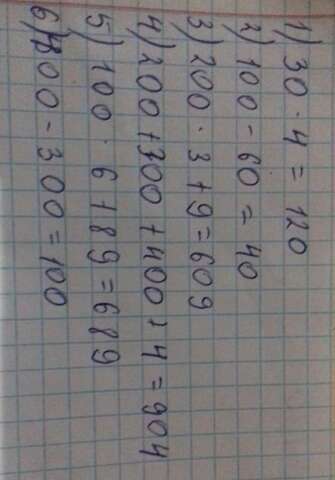 1) 30 · 4 = 120
2) 100 - 60 = 40
3) 200 · 3 + 9 = 609
4) 200 + 300 + 400 + 4 = 904
5) 100 · 6 + 89 = 689
6) 400 - 300 = 100